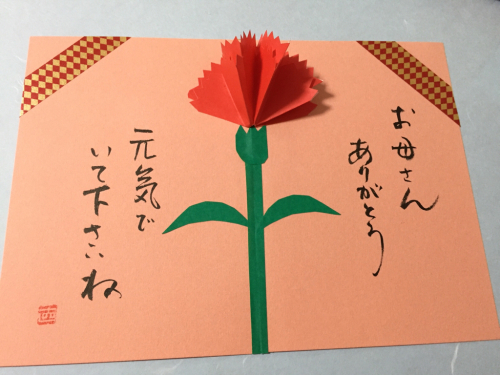 お母さん
ありがとう
元気で
いて下さいね